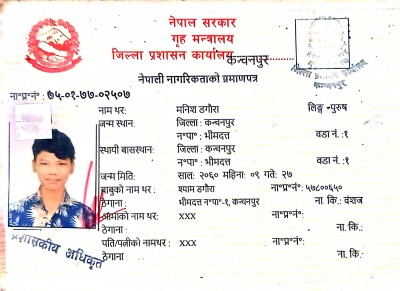 नेपाल सरकार
गृह मन्त्रालय
जिल्ला प्रशासन कार्यालय कन्चनपुर
नेपाली नागरिकताको प्रमाणपत्र
ना॰प्र॰नं॰ : ७५-०१-७७-०२५०७
नाम थर: मनिश डगौरा लिङ्ग -पुरुष
जन्म स्थान: जिल्ला : कन्चनपुर
न॰पा॰ : भीमदत्त वडा नं. :१
स्थायी बासस्थान: जिल्ला : कन्चनपुर
न॰पा॰ : भीमदत्त वडा नं. :१
जन्म मिति: साल: २०६० महिना: ०९ गते: २७
बाबुको नाम थर: श्याम डगौरा ना॰प्र॰नं॰: ५७८००६५०
ठेगाना: भीमदत्त न॰पा॰-१, कन्चनपुर ना. कि.: वंशज
आमाको नाम थर: xxx ना॰प्र॰नं॰:
ठेगाना: ना. कि.:
पति/पत्नीको नामथर: xxx ना॰प्र॰नं॰:
ठेगाना: ना. कि.:
प्रशासकीय अधिकृत
जिल्ला प्रशासन कार्यालय
कन्चनपुर